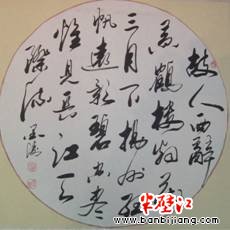 故人西辭
黃鶴樓烟花
三月下揚州孤
帆遠影碧空盡
惟見長江天
際流
半壁江
www.banbijiang.com